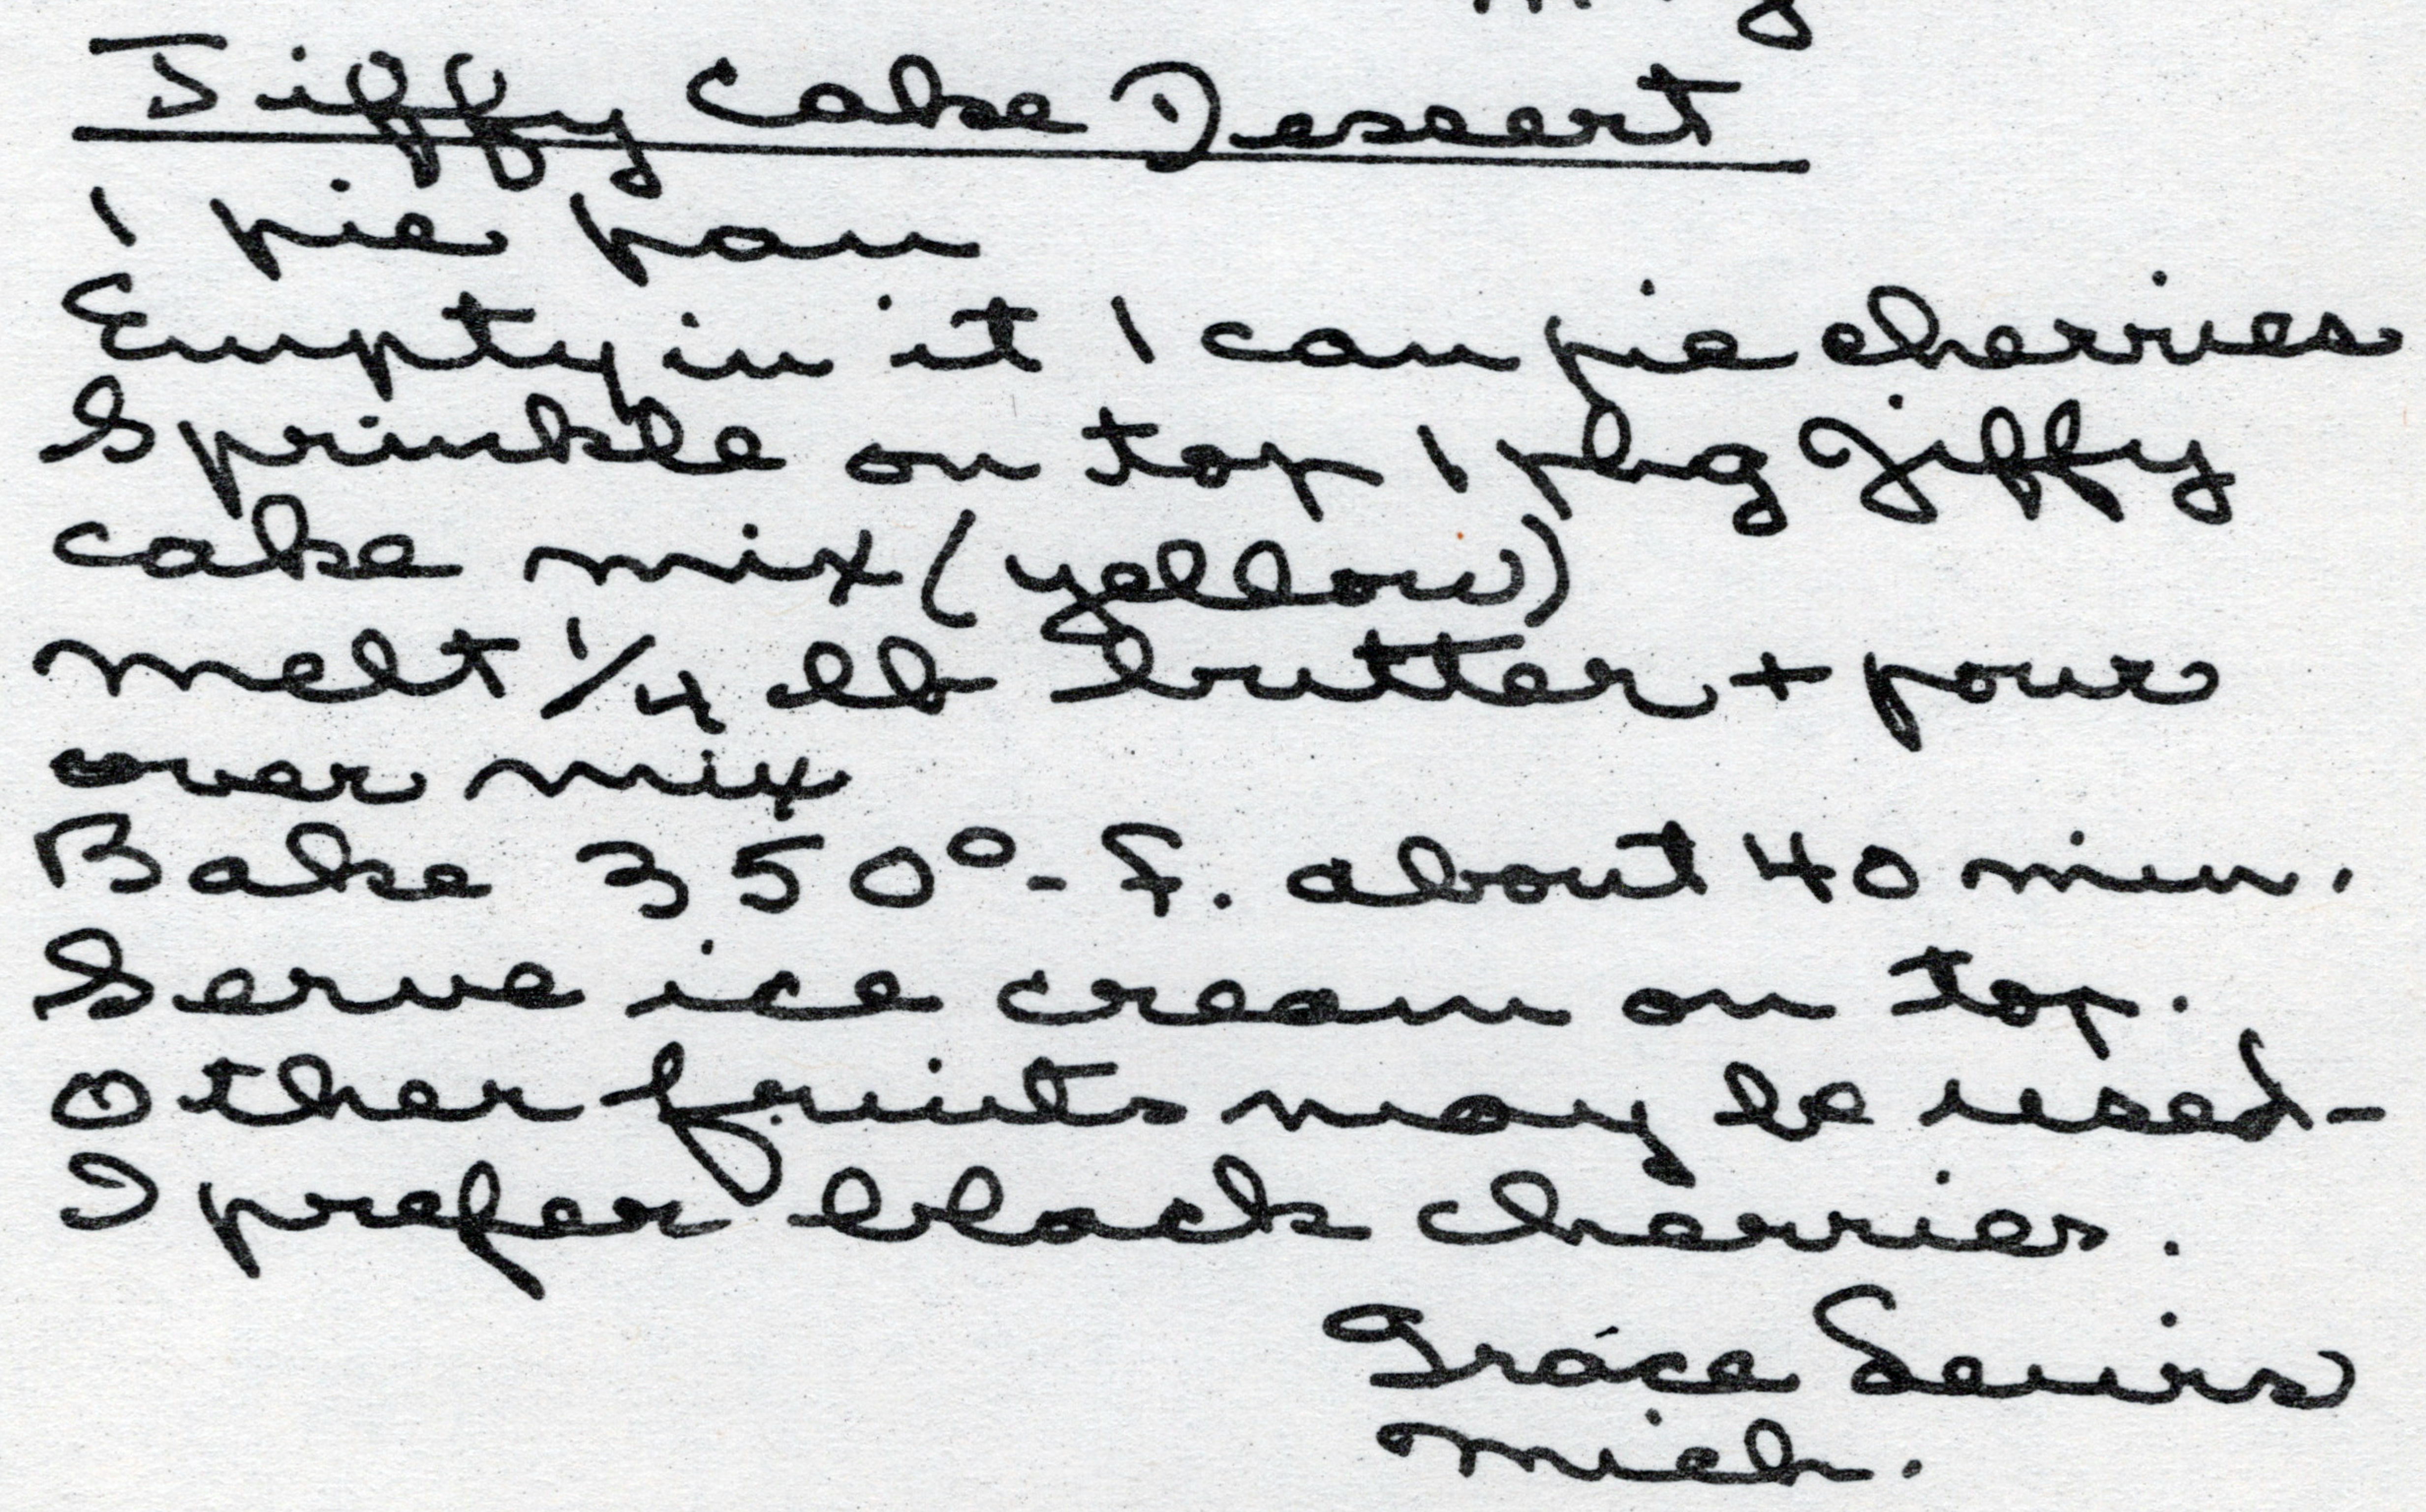 Jiffy Cake Desert
1 pie pan
Empty in it 1 can pie cherries
Sprinkle on top 1 pkg Jiffy
cake mix (yellow)
melt 1/4 lb butter + pour
over mix
Bake 350° - F. about 40 min.
Serve ice cream on top.
Other fruits may be used -
I prefer black cherries.
Grace Lewis
Mich.